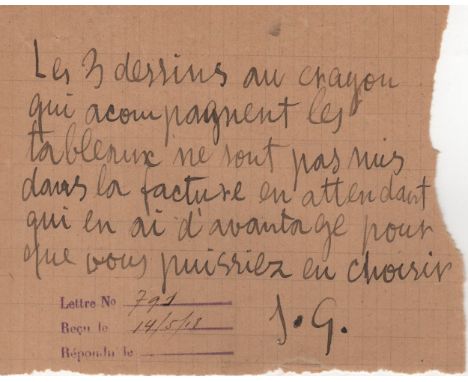 Les 3 dessins au crayon
qui acompagnent les
tableaux ne sont pas mis
dans la facture en attendant
qui en ai d'avantage pour
que vous puissiez en choisir
J. G.
Lettre No 791
Reçu le 14/5/18
Répondu le